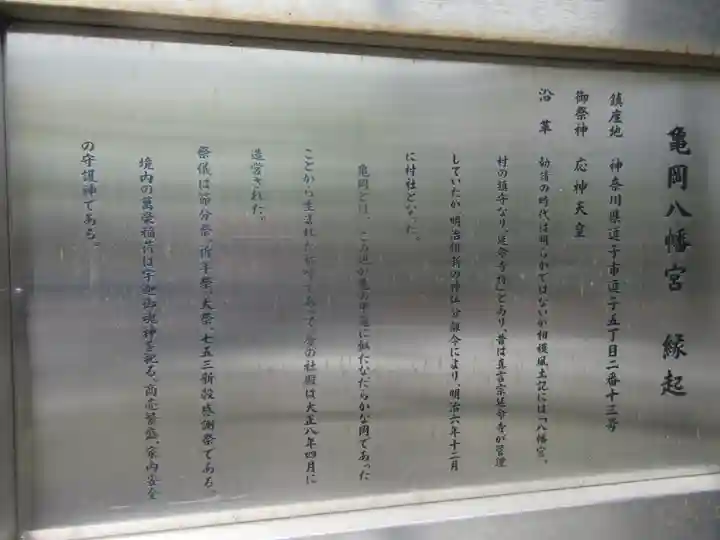 亀岡八幡宮 縁起
鎮座地 神奈川県逗子市逗子五丁目二番十三号
御祭神 応神天皇
沿革 勧請の時代は明らかではないが相模風土記には「八幡宮、
村の鎮守なり、延命寺持」とあり、昔は真言宗延命寺が管理
していたが明治維新の神仏分離令により、明治六年十二月
に村社となった。
亀岡とは、この辺が亀の甲羅に似たなだらかな岡であった
ことから生まれた社号であって今の社殿は大正八年四月に
造営された。
祭儀は節分祭、祈年祭、大祭、七五三新穀感謝祭である。
境内の萬栄稲荷は宇迦御魂神を祀る。商売繁盛、家内安全
の守護神である。